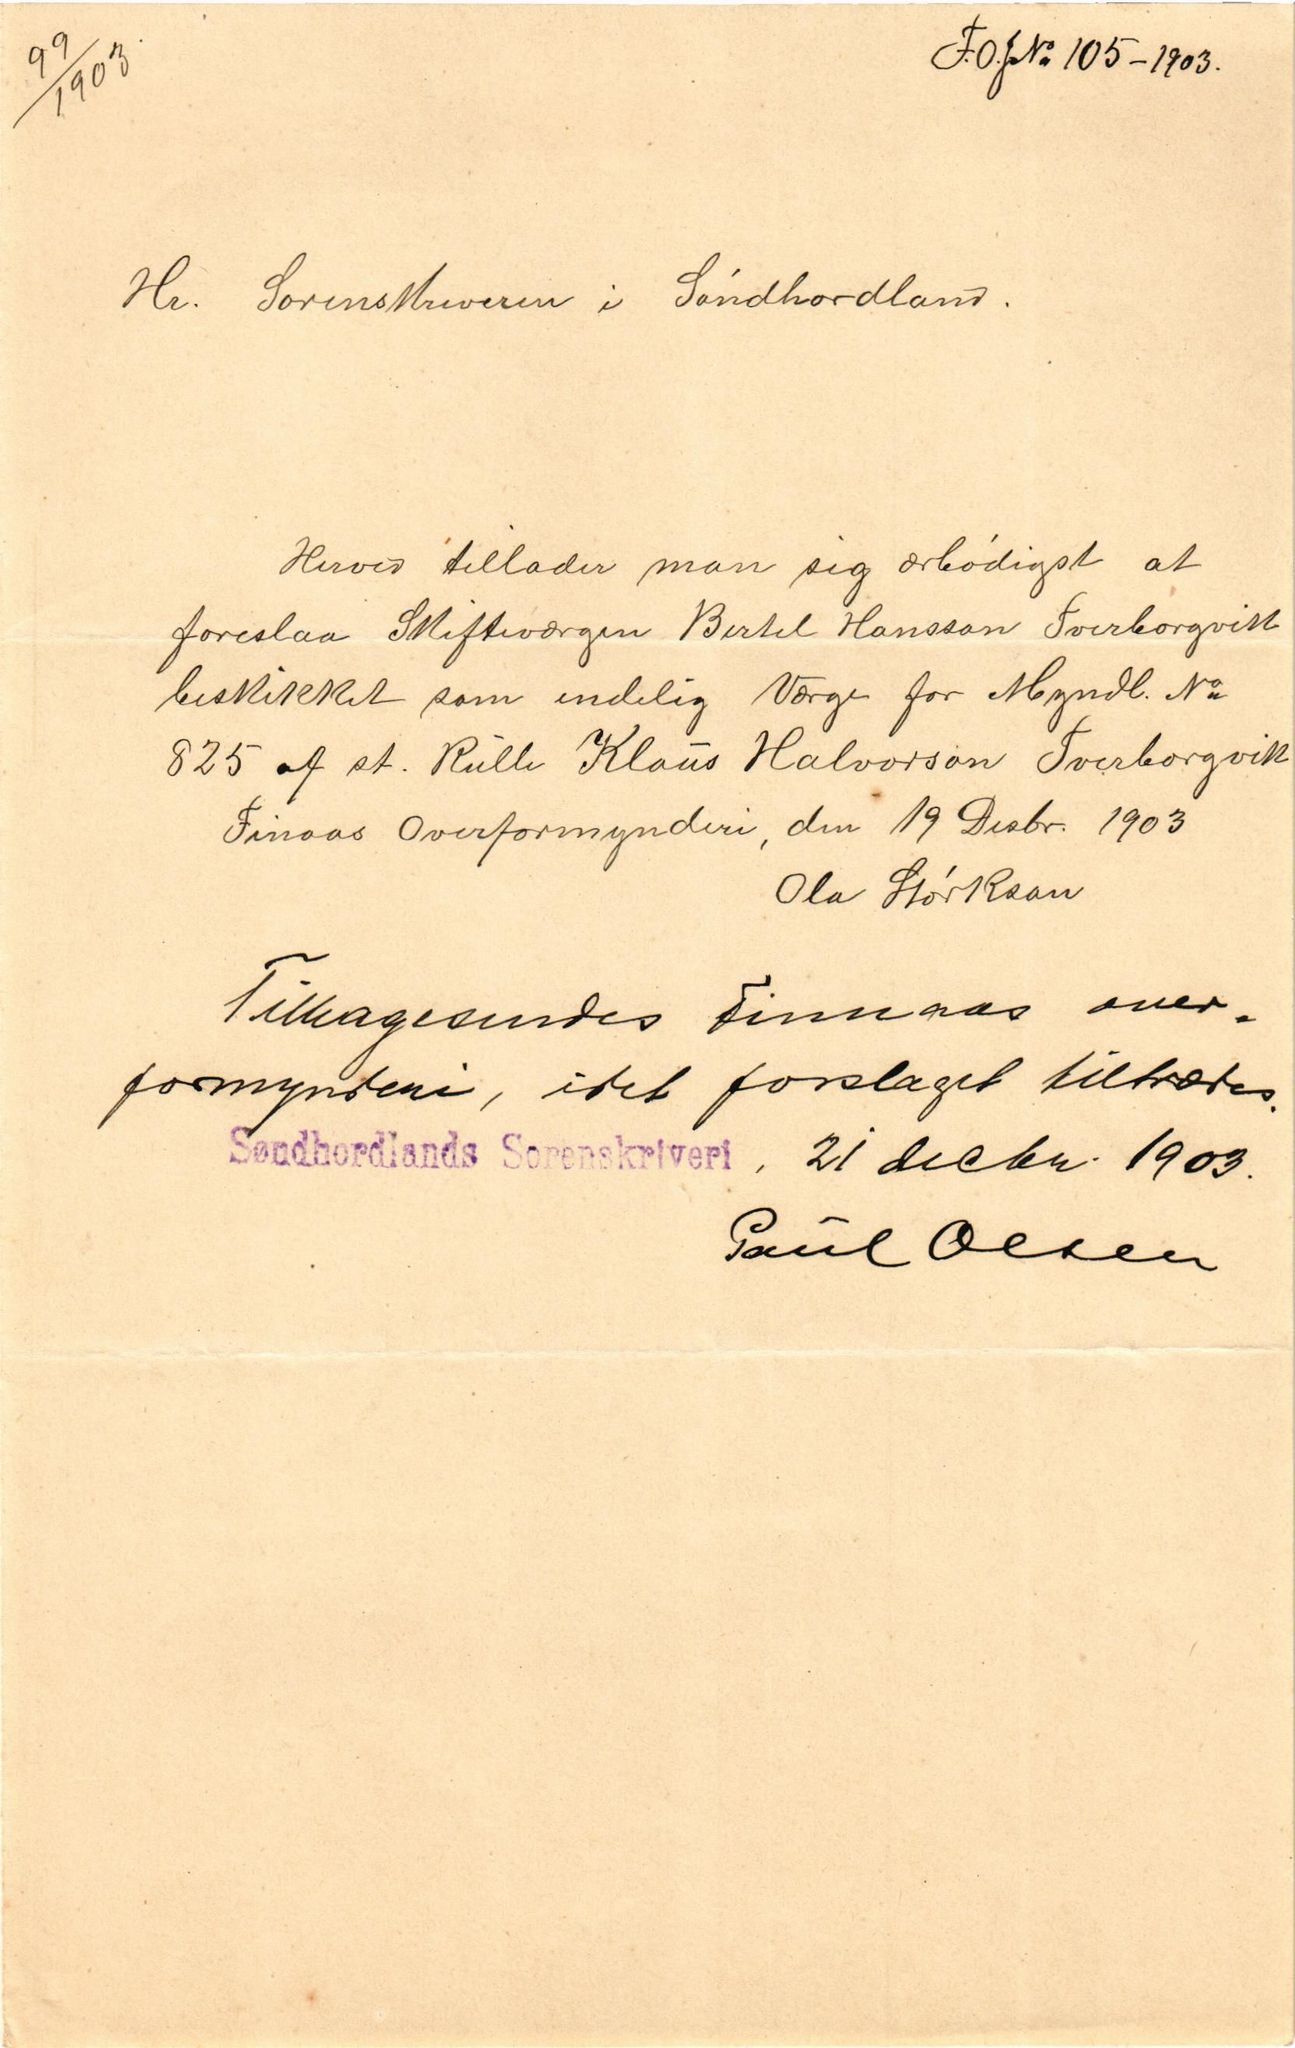 99/1903.
F.O.J.No 105-1903.
Hr. Sorenskriveren i Søndhordland.
Herved tillader man sig ærbødigst at
foreslaa Skifteværgen Bertel Hansson Tverborgvik
beskikket som endelig Værge for Myndl. No
825 af st. Rulle Klaus Halvorson Tverborgvik
Finaas Overformynderi, den 19 Desbr. 1903
Ola Størkson
Tilbagesendes Finnaas over-
formynderi, idet forslaget tiltrædes.
Søndhordlands Sorenskriveri, 21 decbr. 1903.
Paul Olsen